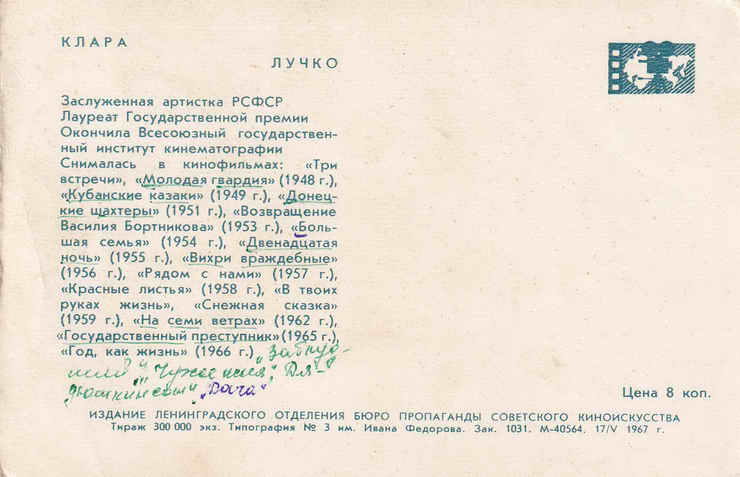 КЛАРА
ЛУЧКО
Заслуженная артистка РСФСР
Лауреат Государственной премии
Окончила Всесоюзный государствен-
ный институт кинематографии
Снималась в кинофильмах: «Три
встречи», «Молодая гвардия» (1948 г.),
«Кубанские казаки» (1949 г.), «Донец-
кие шахтеры» (1951 г.), «Возвращение
Василия Бортникова» (1953 г.), «Боль-
шая семья» (1954 г.), «Двенадцатая
ночь» (1955 г.), «Вихри враждебные»
(1956 г.), «Рядом с нами» (1957 г.),
«Красные листья» (1958 г.), «В твоих
руках жизнь», «Снежная сказка»
(1959 г.), «На семи ветрах» (1962 г.),
«Государственный преступник» (1965 г.),
«Год, как жизнь» (1966 г.)
Цена 8 коп.
ИЗДАНИЕ ЛЕНИНГРАДСКОГО ОТДЕЛЕНИЯ БЮРО ПРОПАГАНДЫ СОВЕТСКОГО КИНОИСКУССТВА
Тираж 300 000 экз. Типография № 3 им. Ивана Федорова. Зак. 1031. М-40564. 17/V 1967 г.